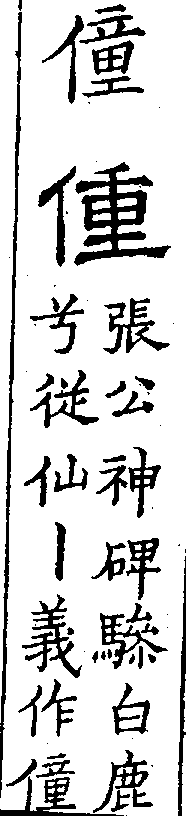 僮
𠊥
張公神碑驂白鹿
兮從仙丨義作僮